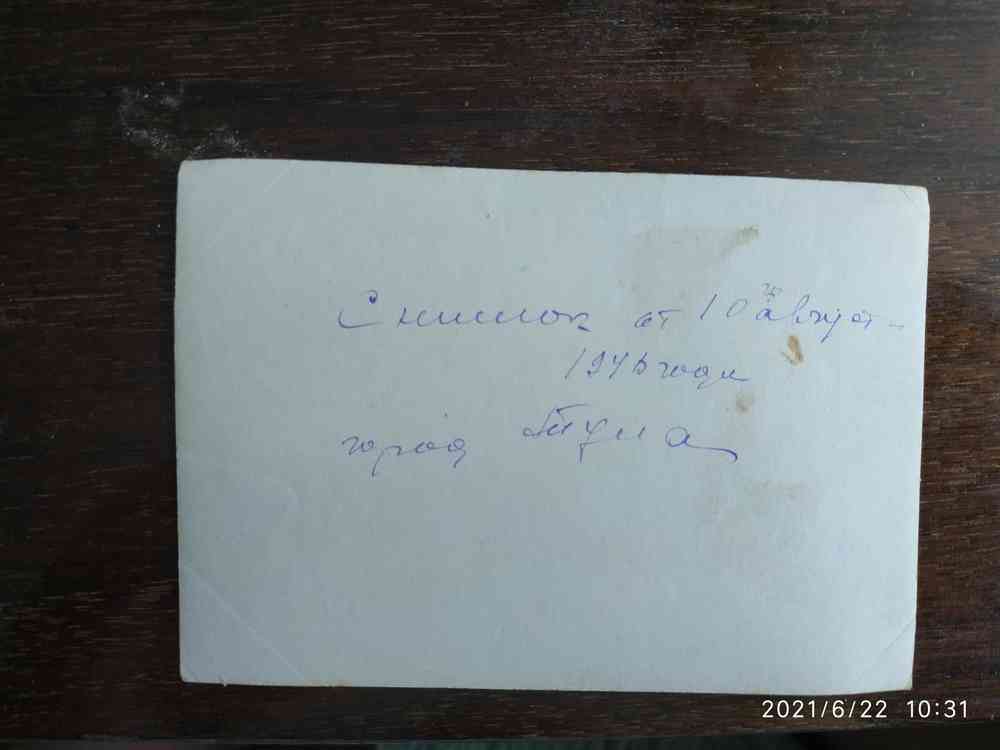 Снимок от 10 август
года
город Тула
2021/6/22 10:31